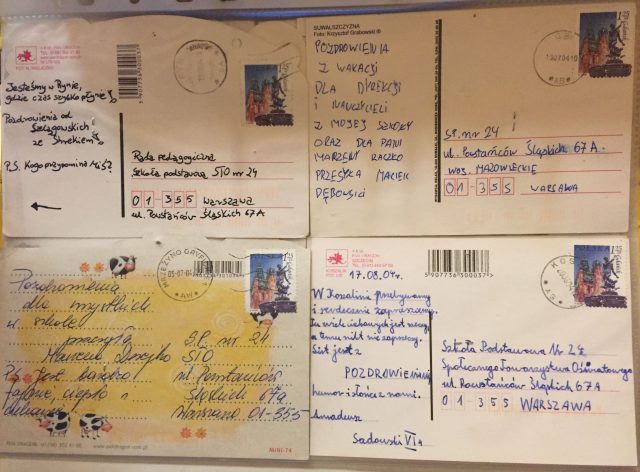 Jesteśmy w Rynie,
gdzie czas szybko płynie!
Pozdrowienia od
Szelągowskich
ze Shrekiem!
P.S. Kogo przypomina Miś?
Rada Pedagogiczna
Szkoła podstawowa STO nr 24
01-355 WARSZAWA
ul. Powstańców Śląskich 67A
SUWALSZCZYZNA
Foto: Krzysztof Grabowski
POZDROWIENIA
Z WAKACJI
DLA DYREKCJI
I NAUCZYCIELI
Z MOJEJ SZKOŁY
ORAZ DLA PANI
MARZENY RACZKO
PRZESYŁA MACIEK
DĘBOWSKI
SP. nr 24
ul. Powstańców Śląskich 67A.
woj. MAZOWIECKIE
01-355 WARSZAWA
Pozdrowienia
dla wszystkich
w szkole
przesyła
Marcin
PS. Jest bardzo
fajnie, ciepło i
S.P. nr 24
STO
ul. Powstańców
Śląskich 67a
Warszawa 01-355
MINI-74
17.08.04r.
5907736300037
W Koszalinie przebywamy
i serdecznie zapraszamy.
Tu wiele ciekawych jest rzeczy
a temu nikt nie zaprzeczy.
List jest z
POZDROWIENIAMI
humor i słońce z nami.
Amadeusz
Sadowski VIa
Szkoła Podstawowa Nr 24
Społecznego Towarzystwa Oświatowego
ul. Powstańców Śląskich 67A
01-355 WARSZAWA